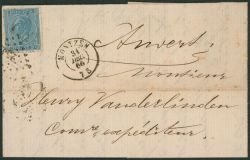 MONTZEN
24
66
Anvers
Monsieur
Henry Vanderlinden
Comre expéditeur.